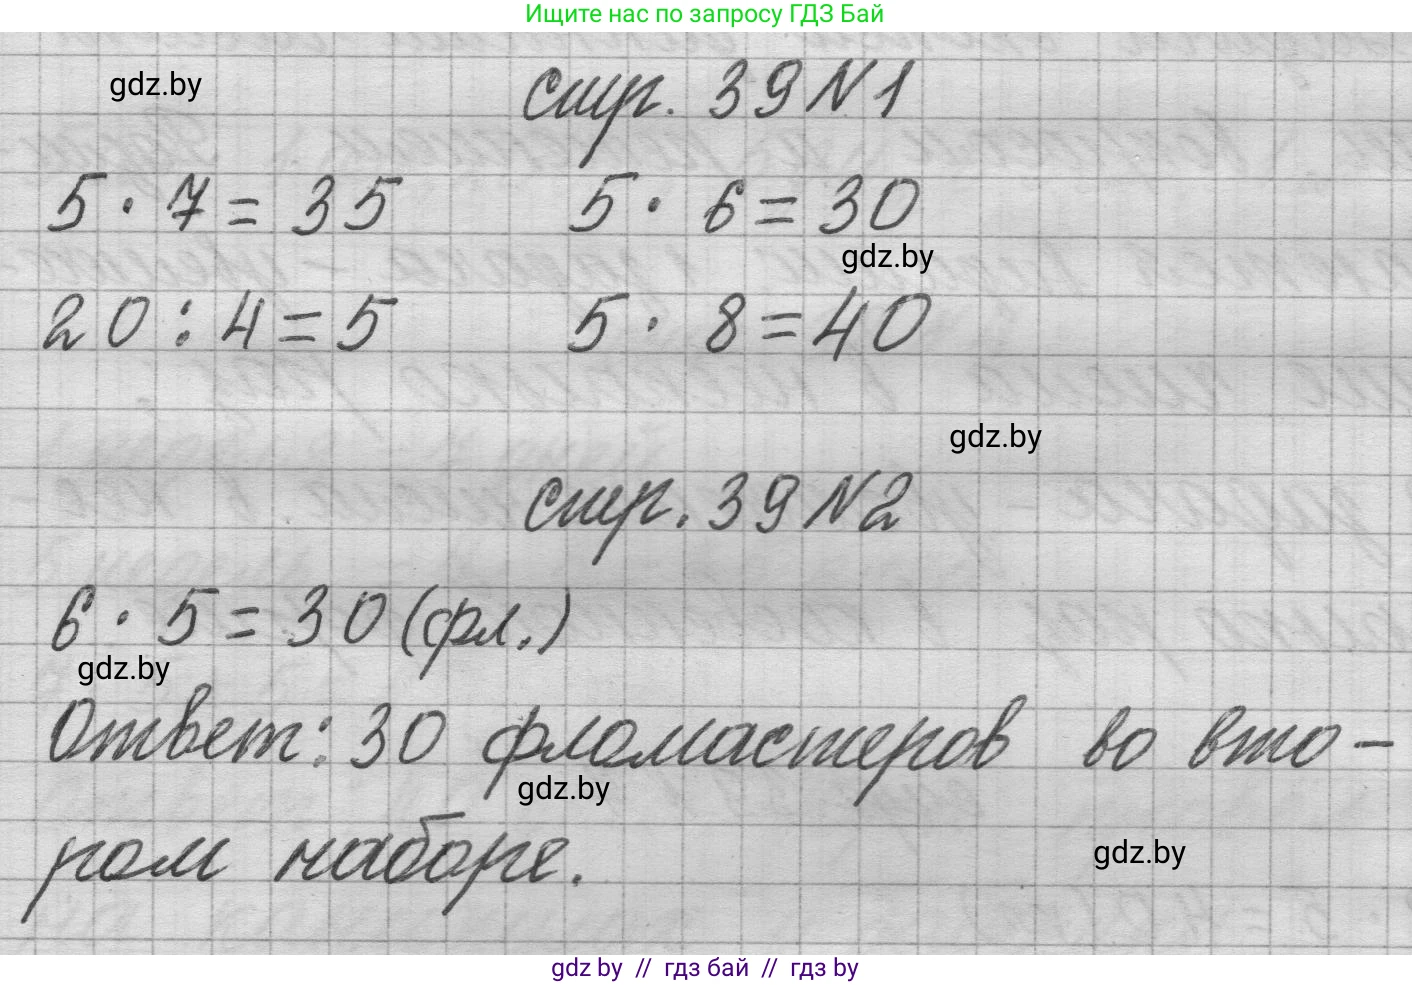 Ищите нас по запросу ГДЗ Бай
gdz.by
стр. 39 №1
5 · 7 = 35 5 · 6 = 30
gdz.by
20 : 4 = 5 5 · 8 = 40
gdz.by
стр. 39 №2
6 · 5 = 30 (фл.)
gdz.by
Ответ: 30 фломастеров во вто-
gdz.by
ром наборе.
gdz.by
gdz by // гдз бай // gdz by